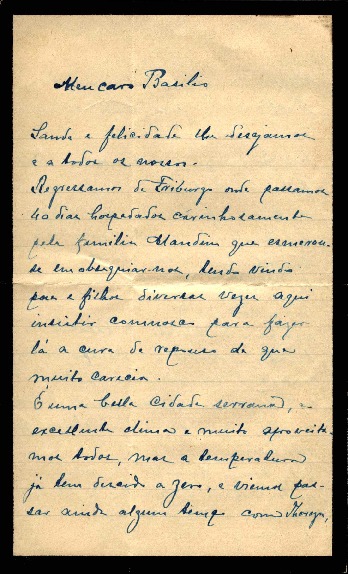 Meu caro Basilio
Saude e felicidade lhe desejamos
e a todos os nossos.
Regressamos de Friburgo onde passamos
40 dias hospedados carinhosamente
pela familia que esmerou-
se em obsequiar-nos, tendo vindo
pae e filha diversas vezes aqui
insistir comnosco para fazer
lá a cura de repouso de que
muito carecia.
É uma bella cidade serrana,
excellente clima e muito aproveita-
mos todos, mas a temperatura
já tem descido a zero, e viemos pas-
sar ainda algum tempo com